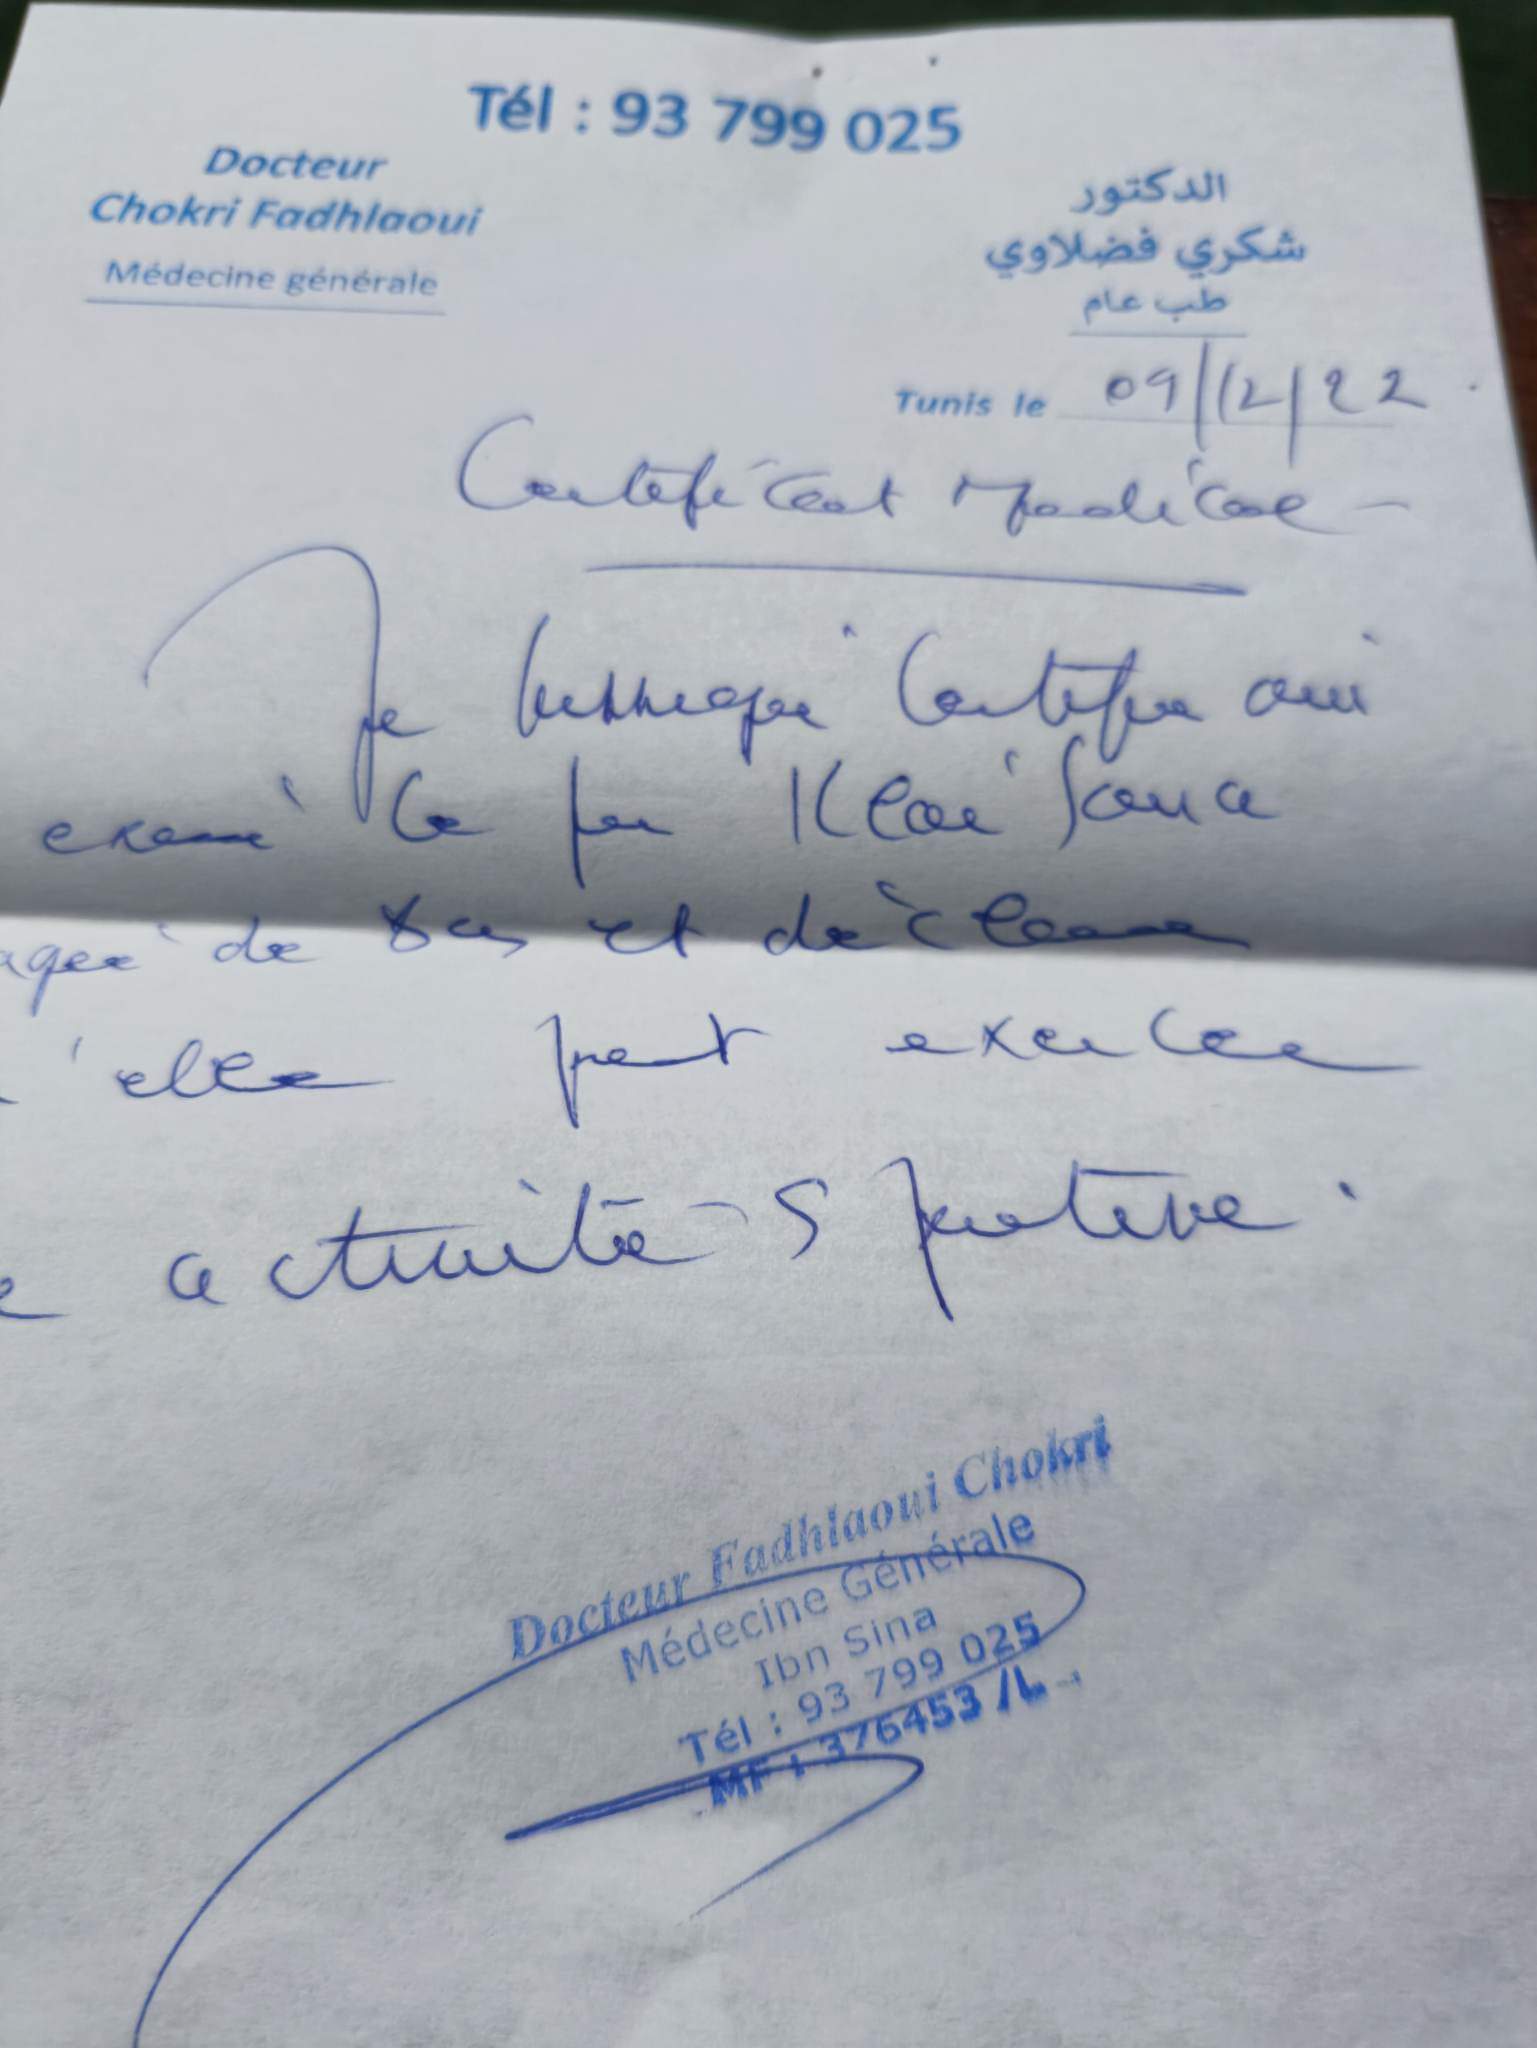 Tél : 93 799 025
Docteur
Chokri Fadhlaoui
Médecine générale
الدكتور
شكري فضلاوي
طب عام
Tunis le 09/12/22
Certificat Medical
Je soussigné Certifie avoir
examiné la
agée de et déclare
'elle peut exercer
activité Sportive.
Docteur Fadhlaoui Chokri
Médecine Générale
Ibn Sina
Tél : 93 799 025
MF : 376453 /L